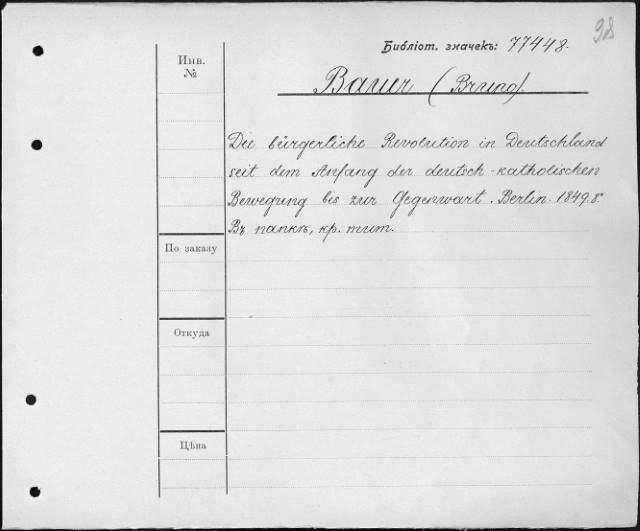 98
Библіот. значекъ: 77448.
Инв.
№
Bauer (Bruno).
Die bürgerliche Revolution in Deutschland
seit dem Anfang der deutsch-katholischen
Bewegung bis zur Gegenwart. Berlin. 1849. 8°
Въ папкѣ, кр. тит.
По заказу
Откуда
Цѣна